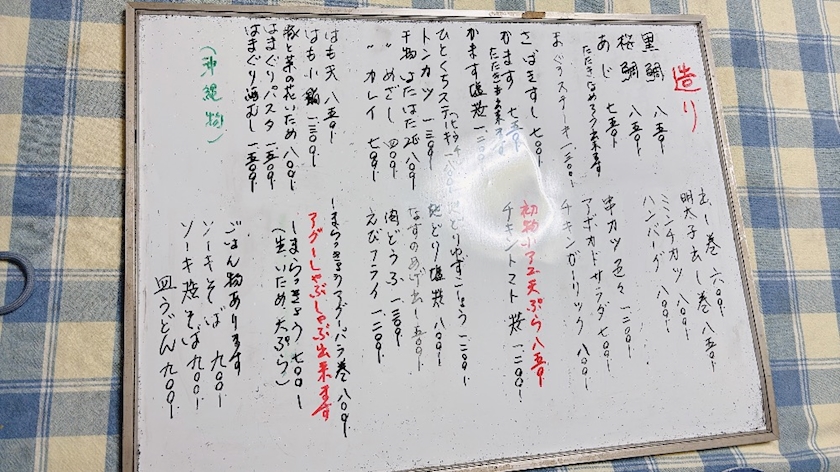 造り
黒鯛 八五〇-
桜鯛 八五〇-
あじ 七五〇-
たたきなめろう出来ます
まぐろステーキ 一二〇〇-
さばきずし 七〇〇-
かます 七五〇-
たたき
かます塩焼 一二〇〇-
ひとくちステーキ 一八〇〇-
トンカツ 一二〇〇-
干物 はたはた2匹 八〇〇-
〃 めざし 四〇〇-
〃 カレイ 七〇〇-
はも天 八五〇-
はも小鍋 一三〇〇-
豚と菜の花いため 八〇〇-
はまぐりパスタ 一五〇〇-
はまぐり酒むし 一五〇〇-
(沖縄物)
出し巻 六〇〇-
明太子出し巻 八五〇-
ミンチカツ 八〇〇-
ハンバーグ 八〇〇-
串カツ色々 一二〇〇-
アボカドサラダ 七〇〇-
チキンガーリック 八〇〇-
初物小アユ天ぷら 八五〇-
チキントマト焼 一二〇〇-
地どりゆずこしょう 一二〇〇-
地どり塩焼 八〇〇-
なすのあげ出し 五〇〇-
肉どうふ 一二〇〇-
えびフライ 一二〇〇-
しまらっきょうアグーバラ巻 八〇〇-
アグーしゃぶしゃぶ出来ます
しまらっきょう 七〇〇-
(生 いため 天ぷら)
ごはん物あります
ソーキそば 九〇〇-
ソーキ焼そば 九〇〇-
皿うどん 九〇〇-